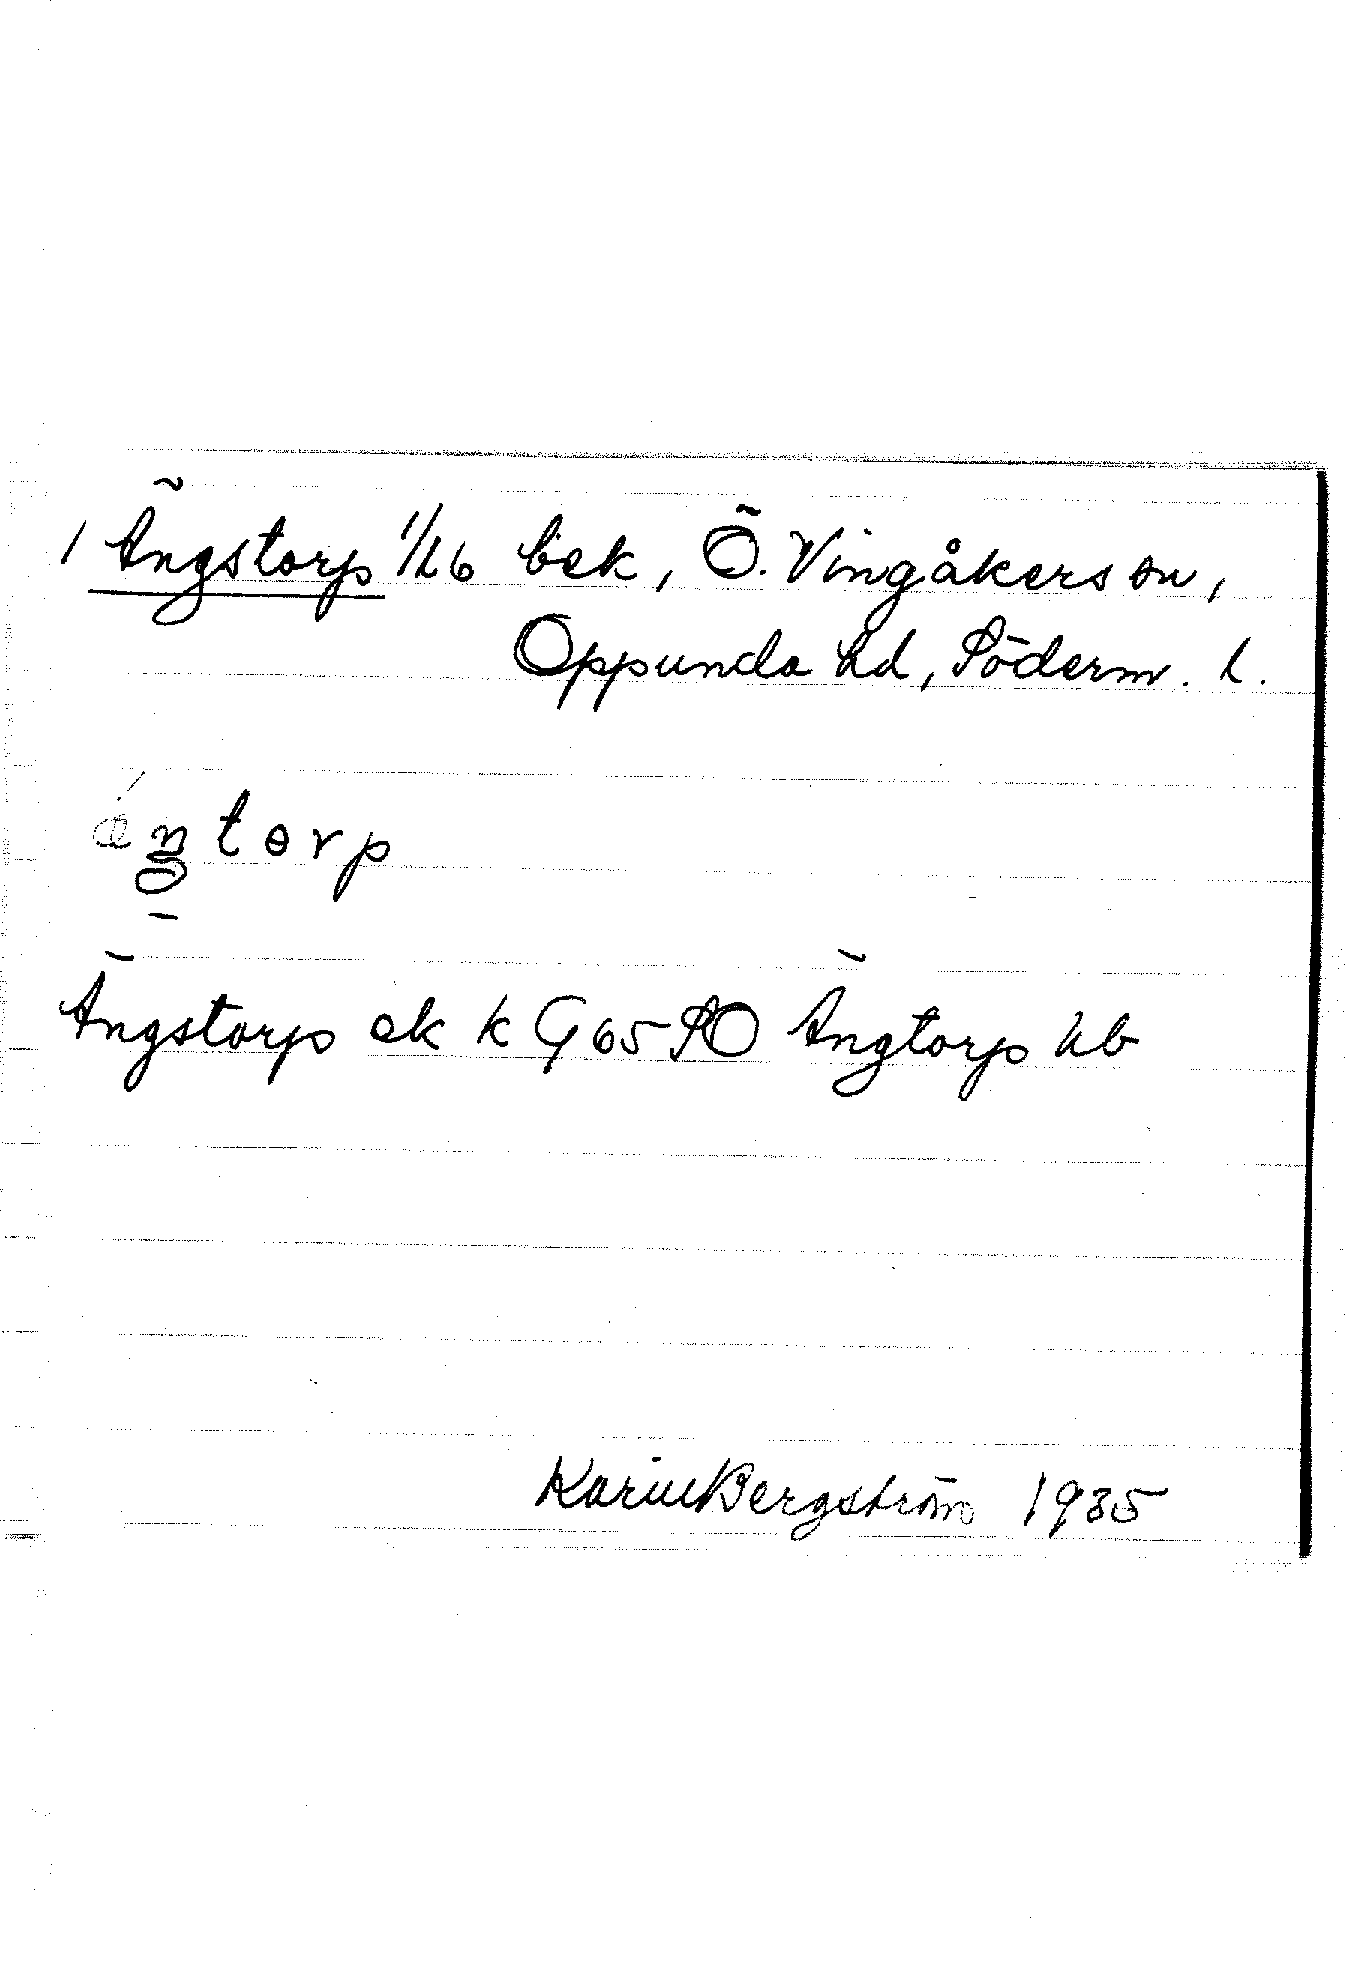 1 Ängstorp 1/16 bek, Ö. Vingåkers sn,
Oppunda hd, Söderm. l.
ä́ŋtorp
Ängstorp ek k G 65 SO Ängtorp hb
Karin Bergström 1935